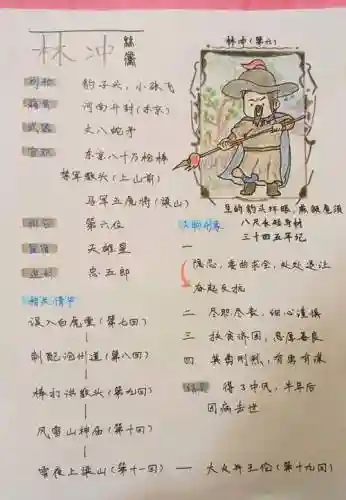 林冲
林冲(第六)
别称 豹子头,小张飞
籍贯 河南开封(东京)
武器 丈八蛇矛
官职 东京八十万枪棒
禁军教头(上山前)
马军五虎将(梁山)
生的豹头环眼,燕颔虎须
八尺长短身材
三十四五年纪
第六位
星宿 天雄星
忠五郎
人物形象
一 隐忍,委曲求全,处处退让
奋起反抗
二 尽职尽责,细心谨慎
三 扶贫济困,忠厚善良
四 英勇刚烈,有勇有谋
结局 得了中风,半年后
因病去世
相关情节
误入白虎堂(第七回)
刺配沧州道(第八回)
棒打洪教头(第九回)
风雪山神庙(第十回)
雪夜上梁山(第十一回) — 火并王伦(第十九回)